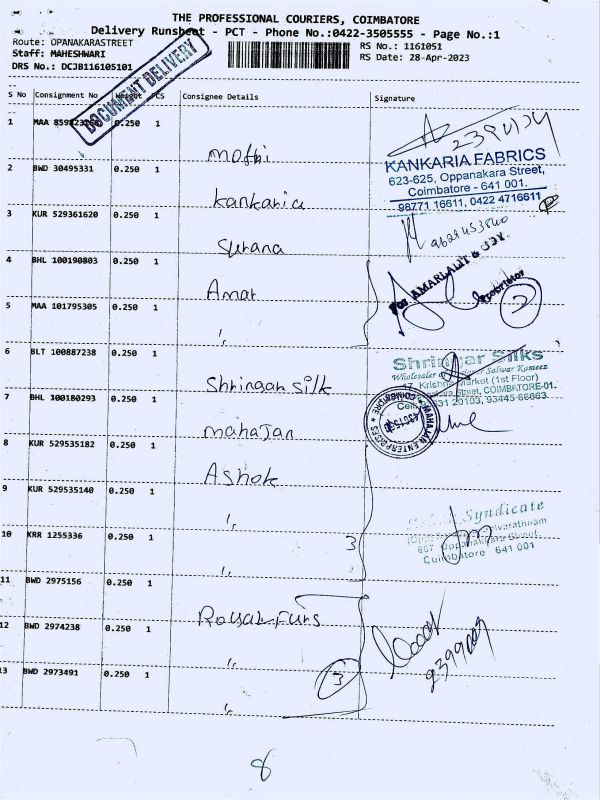 THE PROFESSIONAL COURIERS, COIMBATORE
Delivery Runsheet - PCT - Phone No.:0422-3505555 - Page No.:1
Route: OPANAKARASTREET
Staff: MAHESHWARI
DRS No.: DCJB116105101
RS No.: 1161051
RS Date: 28-Apr-2023
DOCUMENT DELIVERY
S No Consignment No Weight PCS Consignee Details Signature
1 MAA 0.250 1 mothi
2 BWD 30495331 0.250 1 Kankaria
KANKARIA FABRICS
623-625, Oppanakara Street,
Coimbatore - 641 001.
98771 16611, 0422 4716611
3 KUR 529361620 0.250 1 Surana
4 BHL 100190803 0.250 1 Amar
For AMARLALIT &
Proprietor
2
5 MAA 101795305 0.250 1 "
6 BLT 100887238 0.250 1 Shringar silk
Shringar Silks
Wholesaler Salwar Kameez
17, Krishna Market (1st Floor)
Street, COIMBATORE-01.
20103, 93445 66663
7 BHL 100180293 0.250 1 mahajan
MAHAJAN ENTERPRISES
COIMBATORE
8 KUR 529535182 0.250 1 Ashok
9 KUR 529535140 0.250 1 "
Syndicate
667 Oppanakkara Street,
Coimbatore 641 001
10 KRR 1255336 0.250 1 "
3
11 BWD 2975156 0.250 1 Royal Furs
12 BWD 2974238 0.250 1 "
13 BWD 2973491 0.250 1 "
3
8